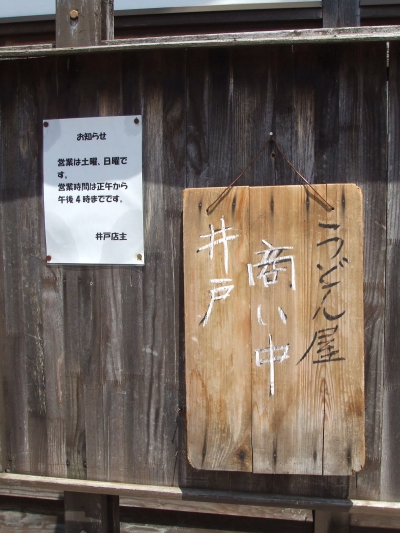 お知らせ
営業は土曜、日曜で
す。
営業時間は正午から
午後4時までです。
井戸店主
うどん屋
商い中
井戸